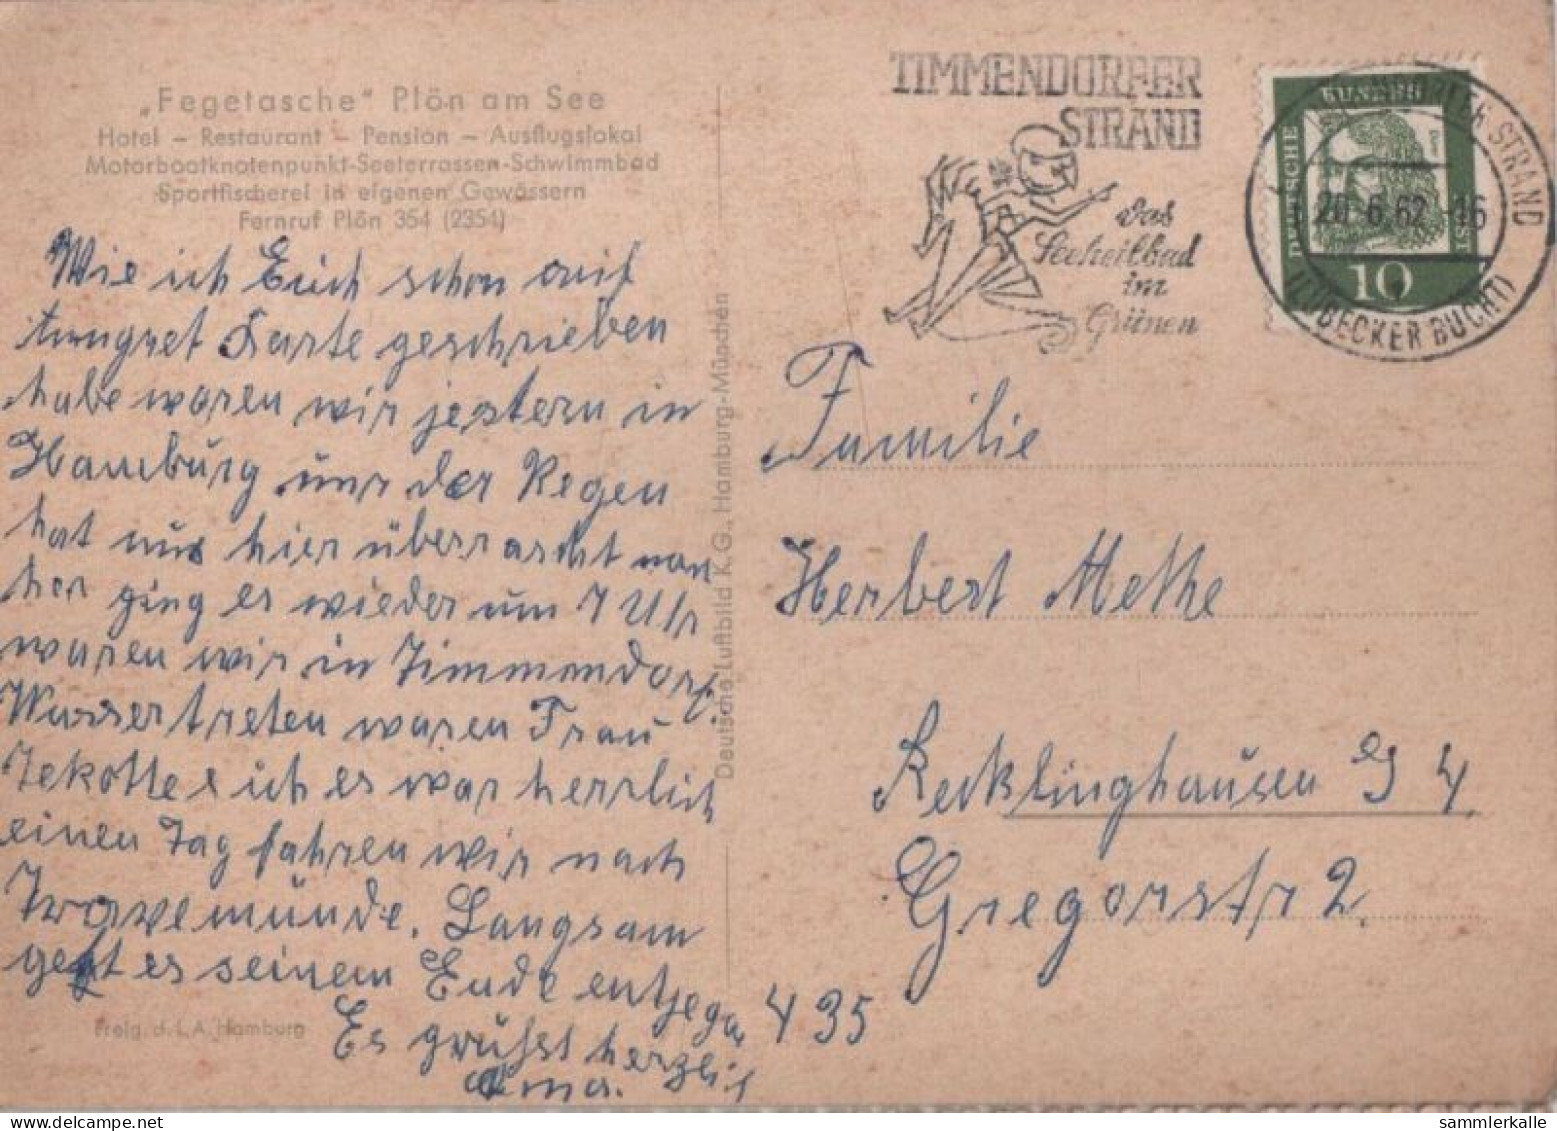 „Fegetasche" Plön am See
Hotel – Restaurant – Pension – Ausflugslokal
Motorbootknotenpunkt-Seeterrassen-Schwimmbad
Sportfischerei in eigenen Gewässern
Fernruf Plön 354 (2354)
Wie ich Euch schon auf
Karte geschrieben
habe waren wir jestern in
Hamburg nur der Regen
hat uns hier überrascht von
her ging es wieder um 7 Uhr
waren wir in Timmendorf.
Wassertreten waren Frau
Tekotte u ich es war herrlich
einen Tag fahren wir nach
Travemünde. Langsam
geht es seinem Ende entjegen
Es grüßt herzlich
Oma.
Freig. d. L.A. Hamburg
Deutsche Luftbild K.G., Hamburg-München
TIMMENDORFER
STRAND
Das
Seeheilbad
im
Grünen
DEUTSCHE BUNDESPOST
10
TIMMENDORFER STRAND
20.6.62-16
(LÜBECKER BUCHT)
Familie
Herbert Methe
Recklinghausen S 4
Gregorstr 2.
435
www.delcampe.net
sammlerkalle